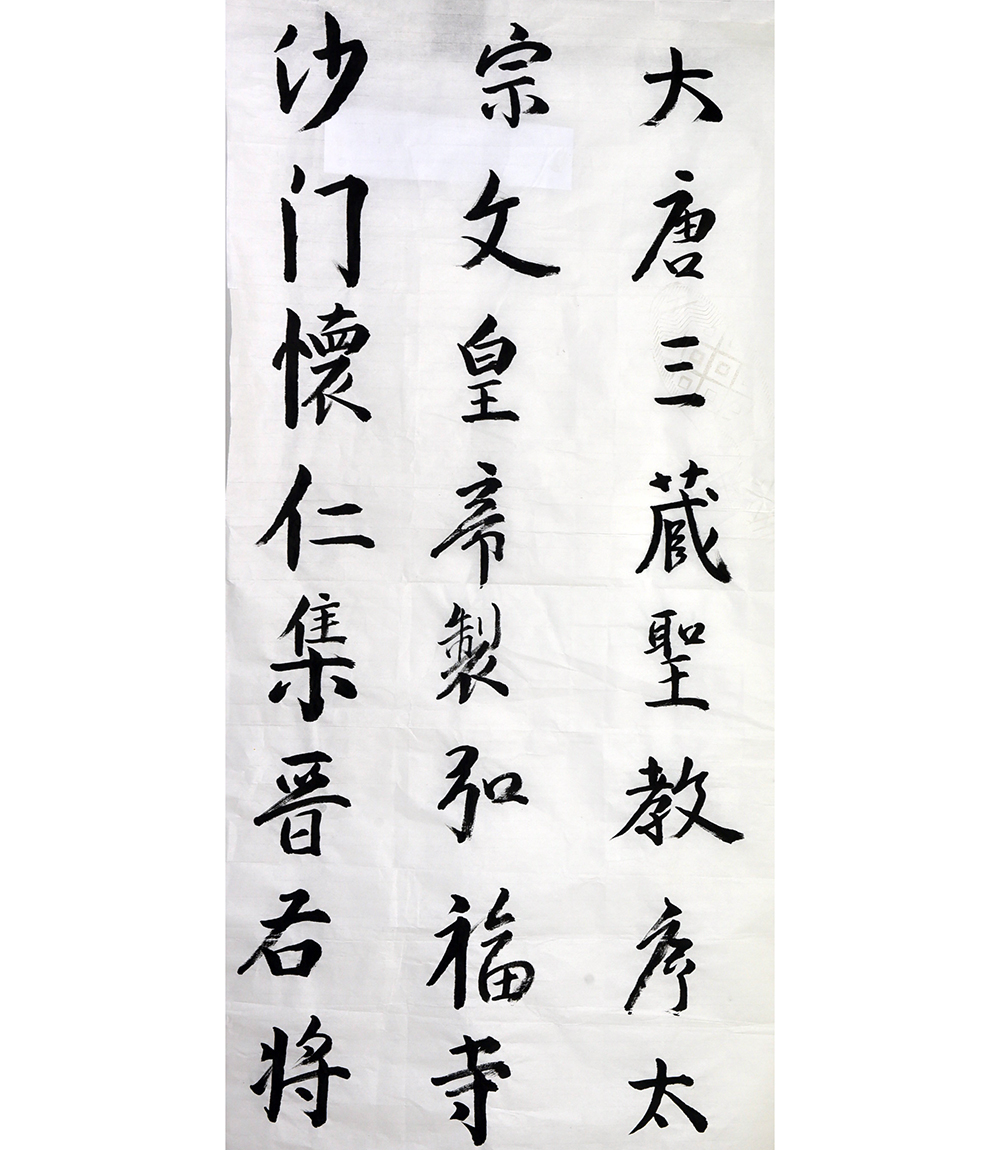 大唐三藏聖教序太
宗文皇帝製弘福寺
沙门懷仁集晋右将